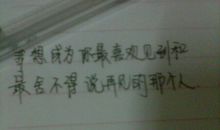 想成为你最喜欢见到和
最舍不得说再见的那个人